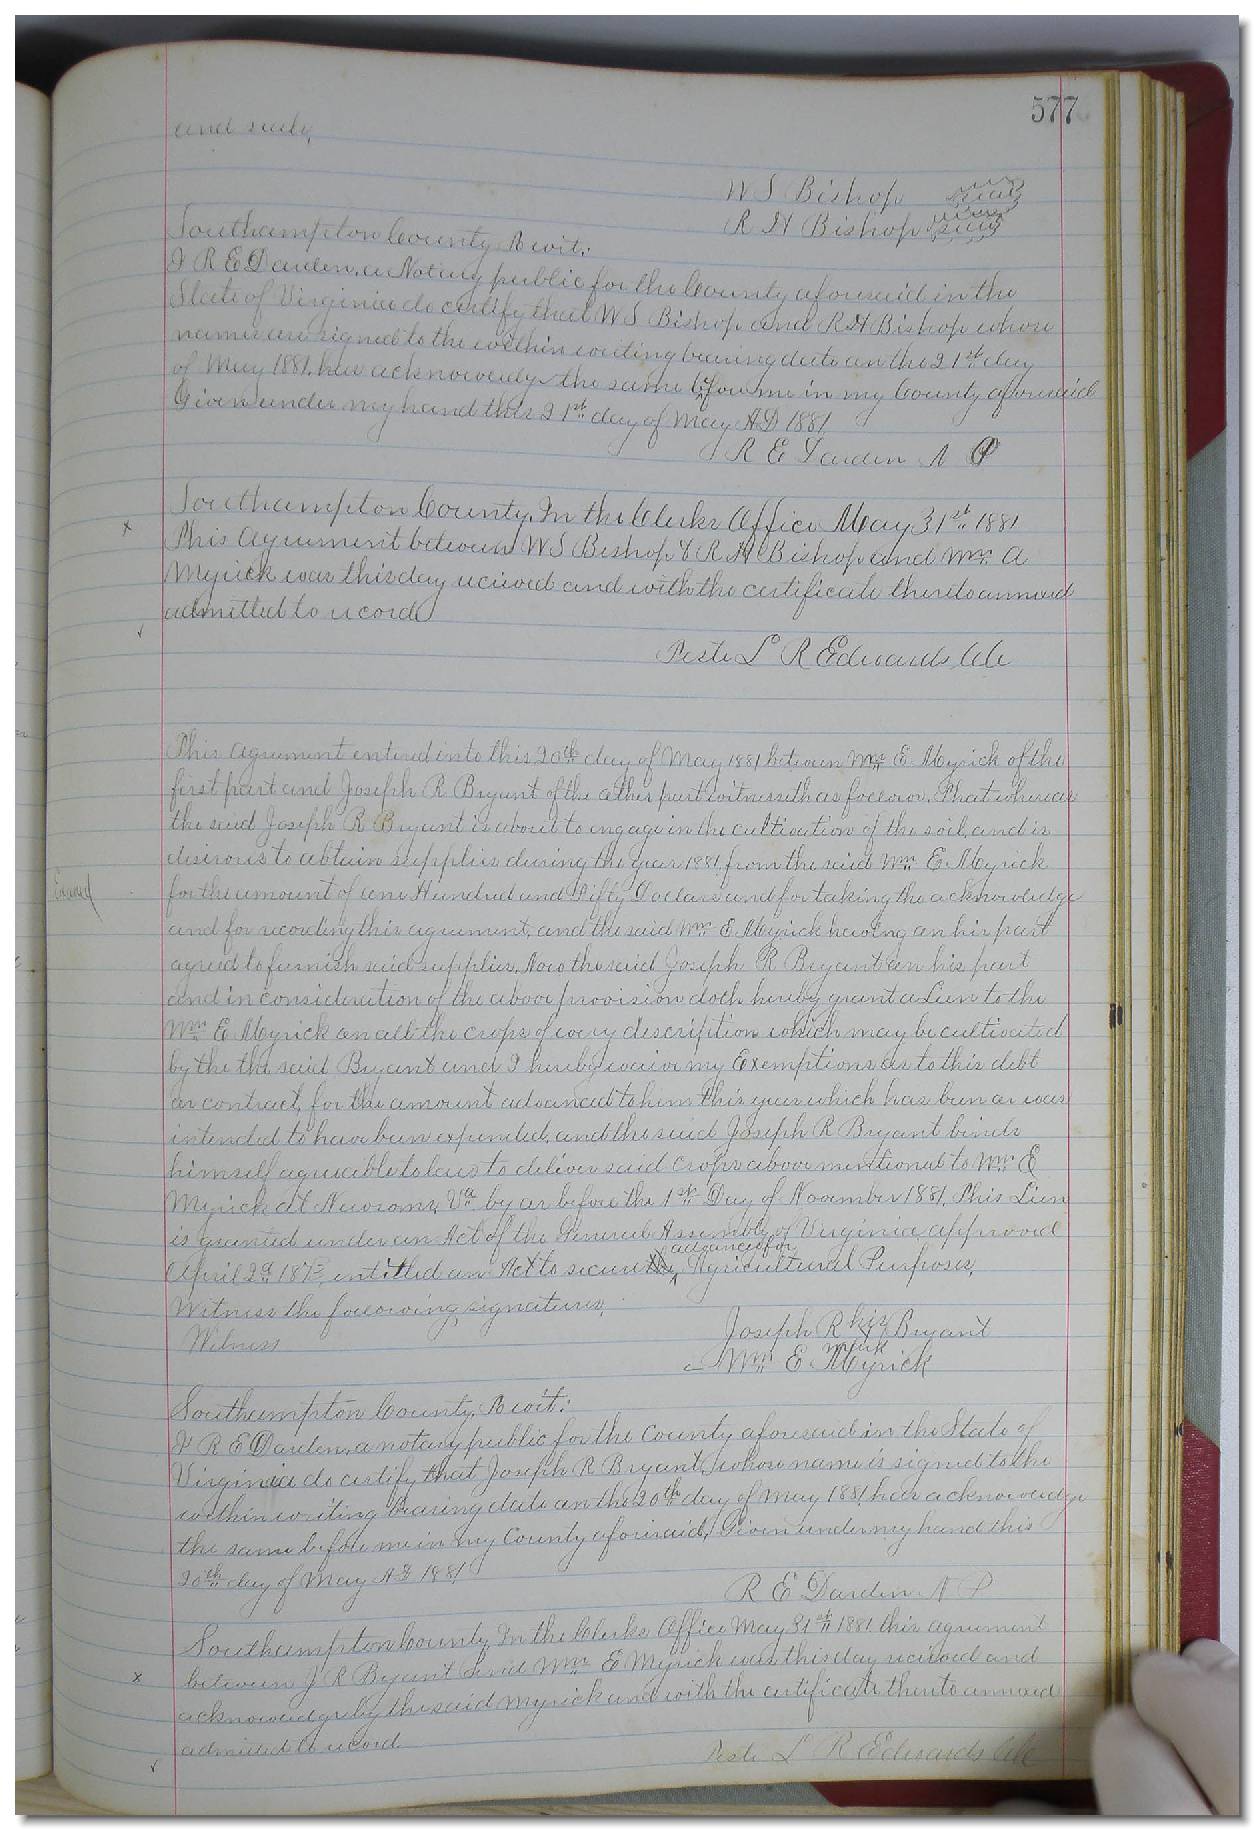 577
and seals,
W S Bishop seal
R H Bishop seal
Southampton County, to wit:
I R E Darden, a Notary public for the County aforesaid in the
State of Virginia do certify that W S Bishop and R H Bishop whose
names are signed to the within writing bearing date on the 21st day
of May 1881, has acknowledge the same before me in my County aforesaid
Given under my hand this 21st day of May AD 1881
R E Darden N P
Southampton County, In the Clerks Office May 31st 1881
x
This Agreement between W S Bishop & R H Bishop and Wm A
Myrick was this day received and with the certificate thereto annexed
admitted to record
Teste L R Edwards, Clk
This Agreement entered into this 20th day of May 1881 between Wm E Myrick of the
first part and Joseph R Bryant of the other part witnesseth as follows, That whereas
the said Joseph R Bryant is about to engage in the cultivation of the soil, and is
desirous to obtain supplies during the year 1881, from the said Wm E Myrick
for the amount of one Hundred and Fifty Dollars and for taking the acknowledge
and for recording this agreement, and the said Wm E Myrick having on his part
agreed to furnish said supplies, Now the said Joseph R Bryant on his part
and in consideration of the above provision doth hereby grant a Lien to the
Wm E Myrick on all the crops of every description which may be cultivated
by the the said Bryant and I hereby waive my Exemptions as to this debt
or contract, for the amount advanced to him this year which has been or was
intended to have been expended, and the said Joseph R Bryant binds
himself agreeable to law to deliver said crops above mentioned to Wm E
Myrick at Newsoms, Va by or before the 1st Day of November 1881. This Lien
is granted under an Act of the General Assembly of Virginia approved
advances for
April 2d 1873, entitled an Act to secure Agricultural Purposes,
Witness the following signatures,
Witness
Joseph R his x mark Bryant
Wm E Myrick
Southampton County, to wit:
I R E Darden, a notary public for the County aforesaid in the State of
Virginia do certify that Joseph R Bryant, whose name is signed to the
within writing bearing date on the 20th day of May 1881, has acknowledge
the same before me in my County aforesaid, Given under my hand this
20th day of May AD 1881
R E Darden N P
Southampton County, In the Clerks Office May 31st 1881 this agreement
x
between J R Bryant and Wm E Myrick was this day received and
acknowledge by the said Myrick and with the certificate thereto annexed
admitted to record
Teste L R Edwards Clk